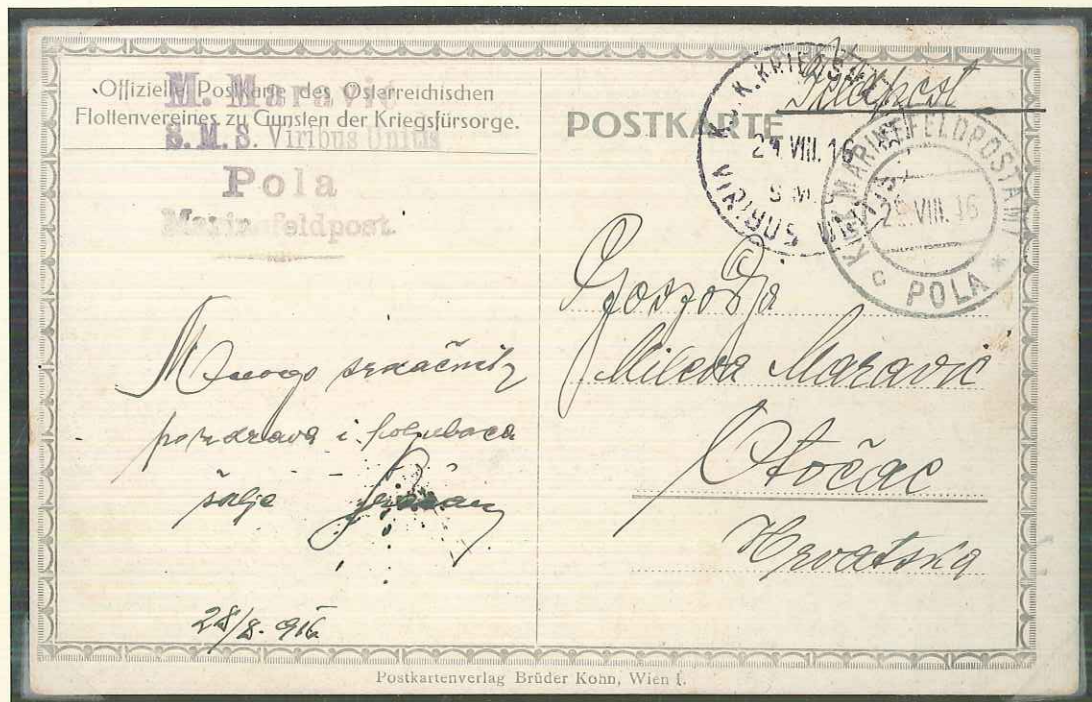 Offizielle Postkarte des Österreichischen
Flottenvereines zu Gunsten der Kriegsfürsorge.
M. Maravić
S.M.S. Viribus Unitis
Pola
Marinefeldpost.
POSTKARTE
Feldpost
K.U.K. KRIEGSMARINE
VIII. 16
S.M.S.
VIRIBUS UNITIS
K.U.K. MARINEFELDPOSTAMT
VIII. 16
c POLA *
Mnogo srdačnih
pozdrava i poljubaca
šalje
28/8. 916
Gospodja
Mileva Maravić
Otočac
Hrvatska
Postkartenverlag Brüder Kohn, Wien I.